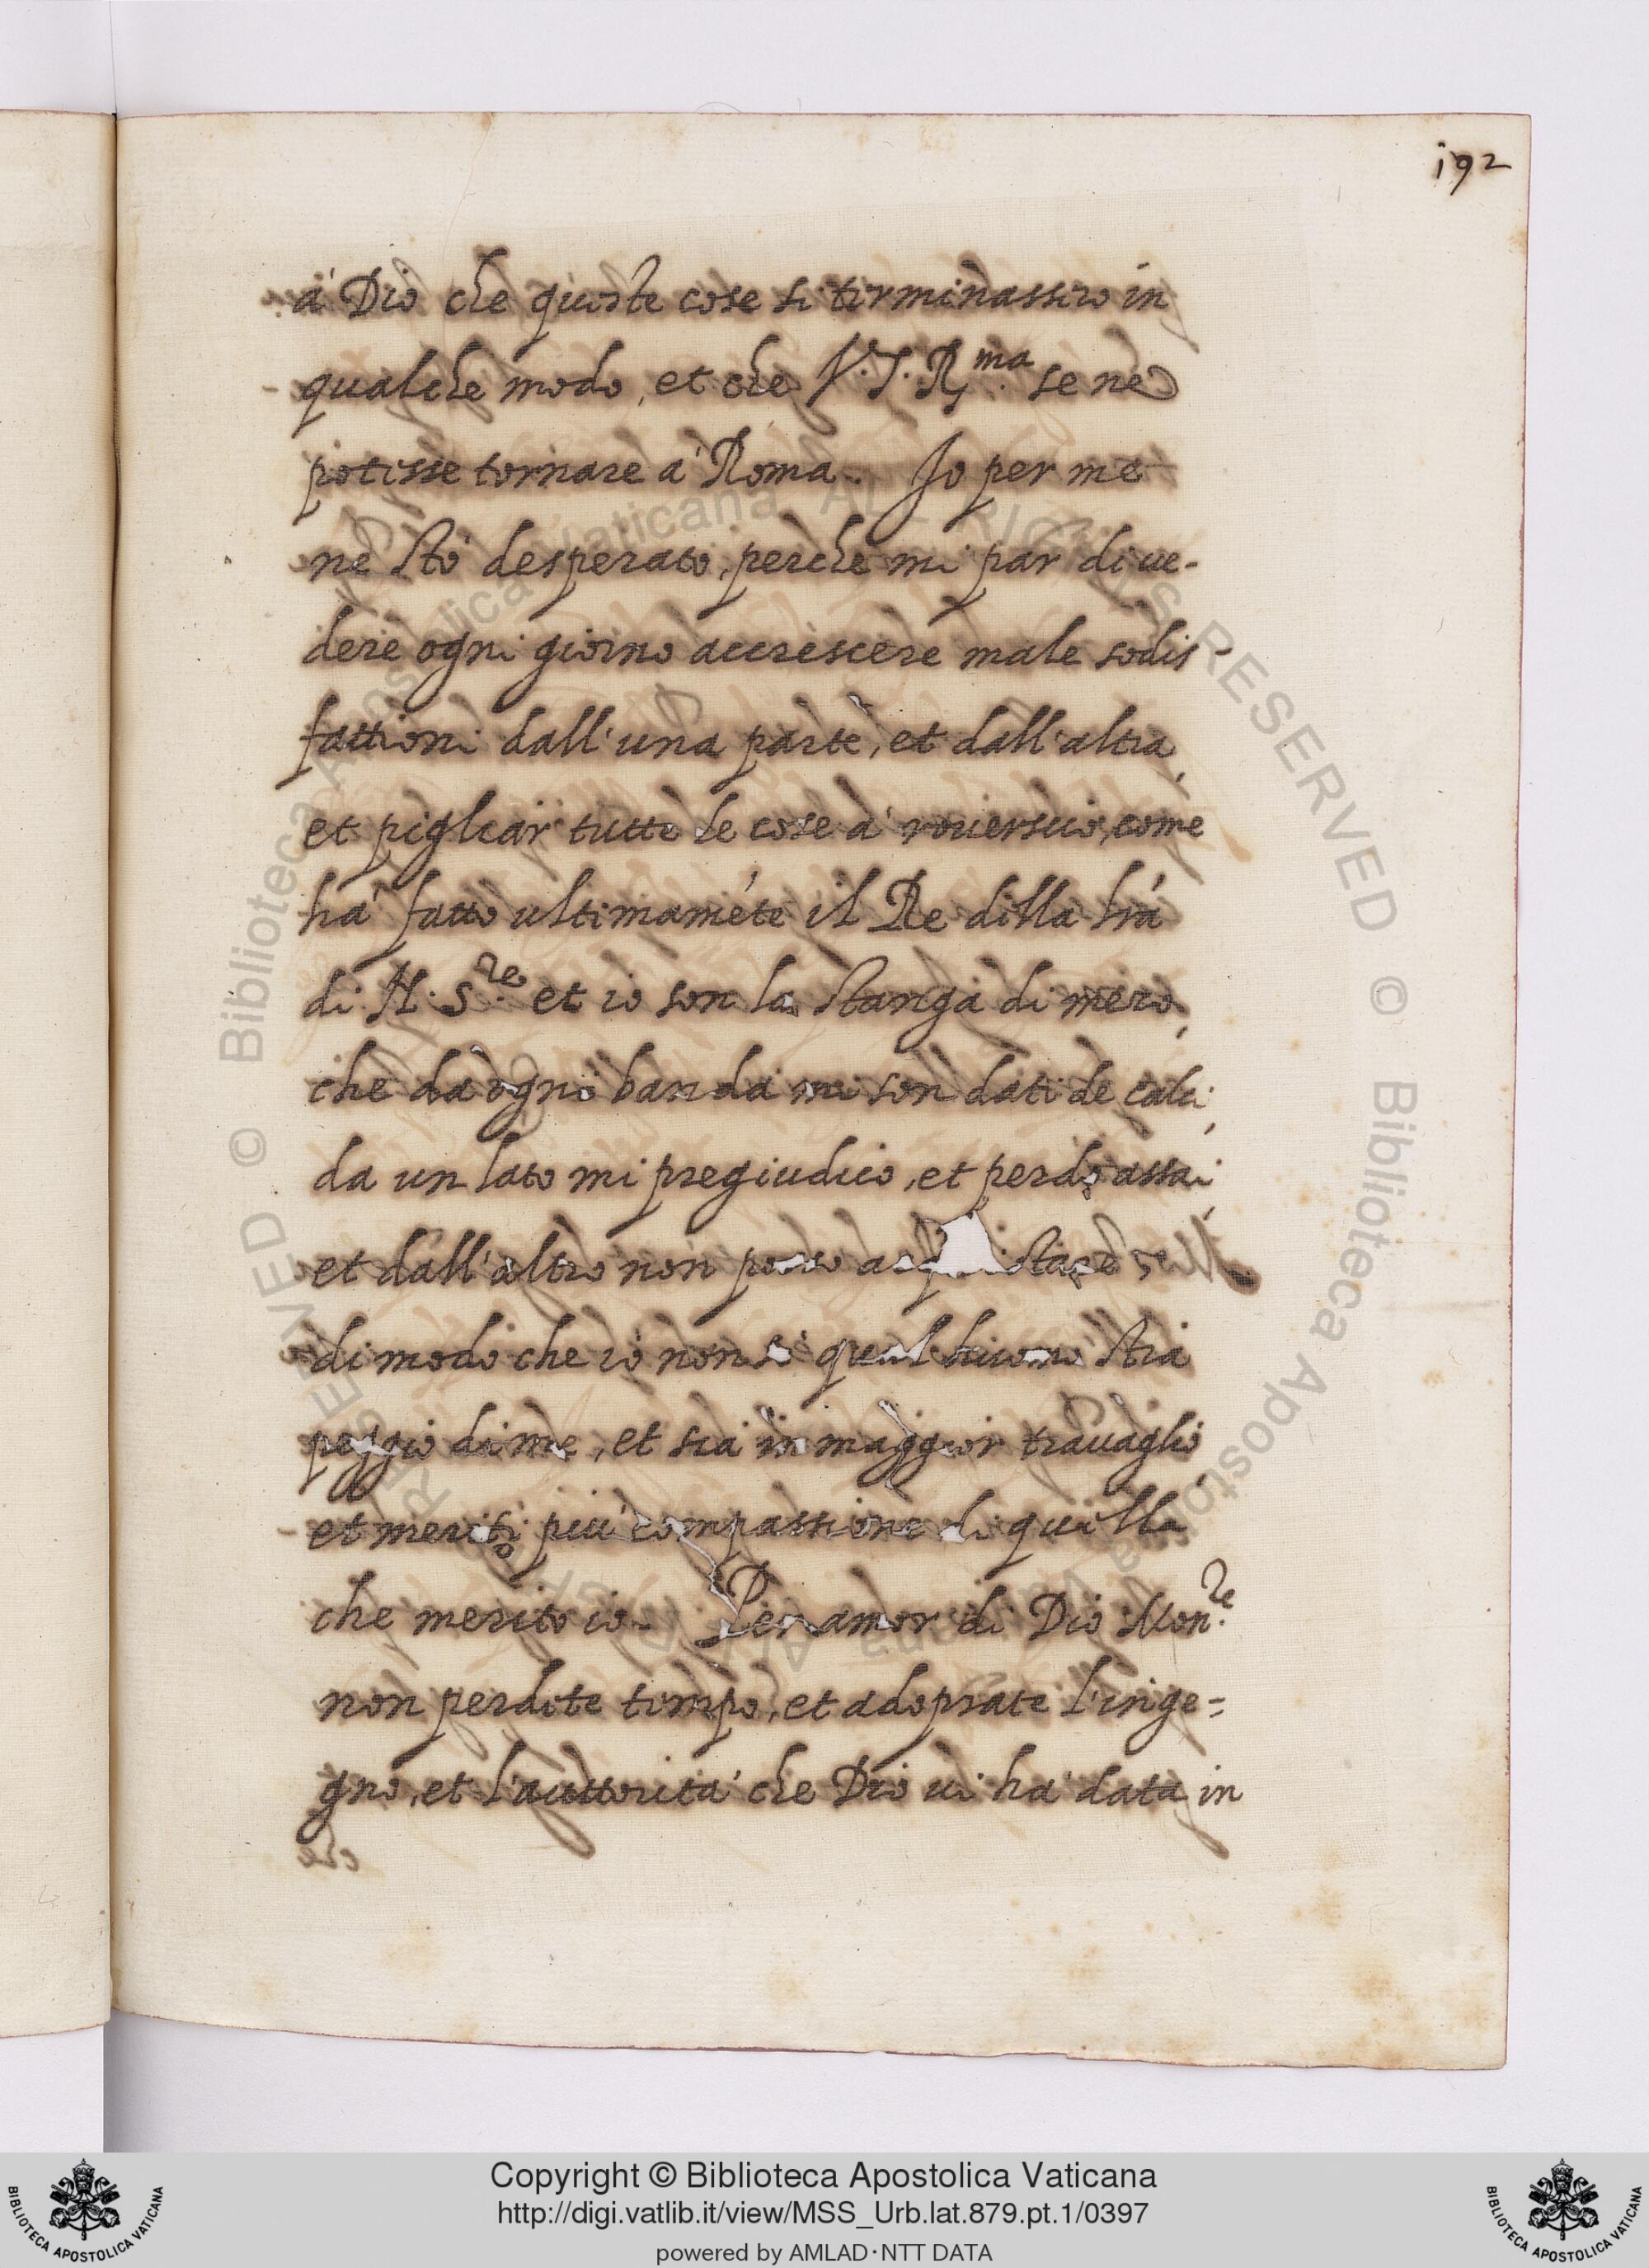 192
à Dio che queste cose si terminassero in
qualche modo, et che V.S.R.ma se ne
potesse tornare à Roma. Io per me
ne stò desperato, perche mi par di ue-
dere ogni giorno accrescere male sodis
fattioni dall'una parte, et dall'altra,
et pigliar tutte le cose à rouerscio, come
hà fatto ultimaméte il Re della lrá
di N. S.re et io son la stanga di mezo,
che da ogni banda mi son dati de calci,
da un lato mi pregiudico, et perdo assai,
et dall'altro non posso acquistare
di modo che io non sò qual huomo stia
peggio di me, et sia in maggior trauaglio,
et meriti più compassione di quella
che merito io. Per amor di Dio Mon.re
non perdete tempo, et adoprate l'inge=
gno, et l'auttorità che Dio ui hà data in
Copyright © Biblioteca Apostolica Vaticana
http://digi.vatlib.it/view/MSS_Urb.lat.879.pt.1/0397
powered by AMLAD·NTT DATA
BIBLIOTECA APOSTOLICA VATICANA
BIBLIOTECA APOSTOLICA VATICANA
© Biblioteca Apostolica Vaticana ALL RIGHTS RESERVED
© Biblioteca Apostolica Vaticana ALL RIGHTS RESERVED